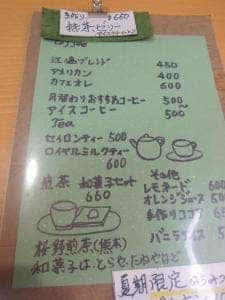 手作り ¥660
抹茶ゼリー
アイスコーヒー
Coffee
ブレンド 450
アメリカン 400
カフェオレ 600
月替わりおすすめコーヒー 500～
アイスコーヒー 500
Tea
セイロンティー 500
ロイヤルミルクティー 600
煎茶 和菓子セット 660
その他
レモネード 600
オレンジジュース 50
手作りココア
バニラアイス 5
桜野煎茶(熊本)
和菓子は、とらや、たねやなど
夏期限定